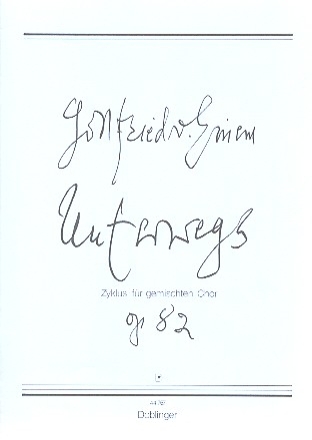 Gottfried v. Einem
Unterwegs
Zyklus für gemischten Chor
op 82
Doblinger